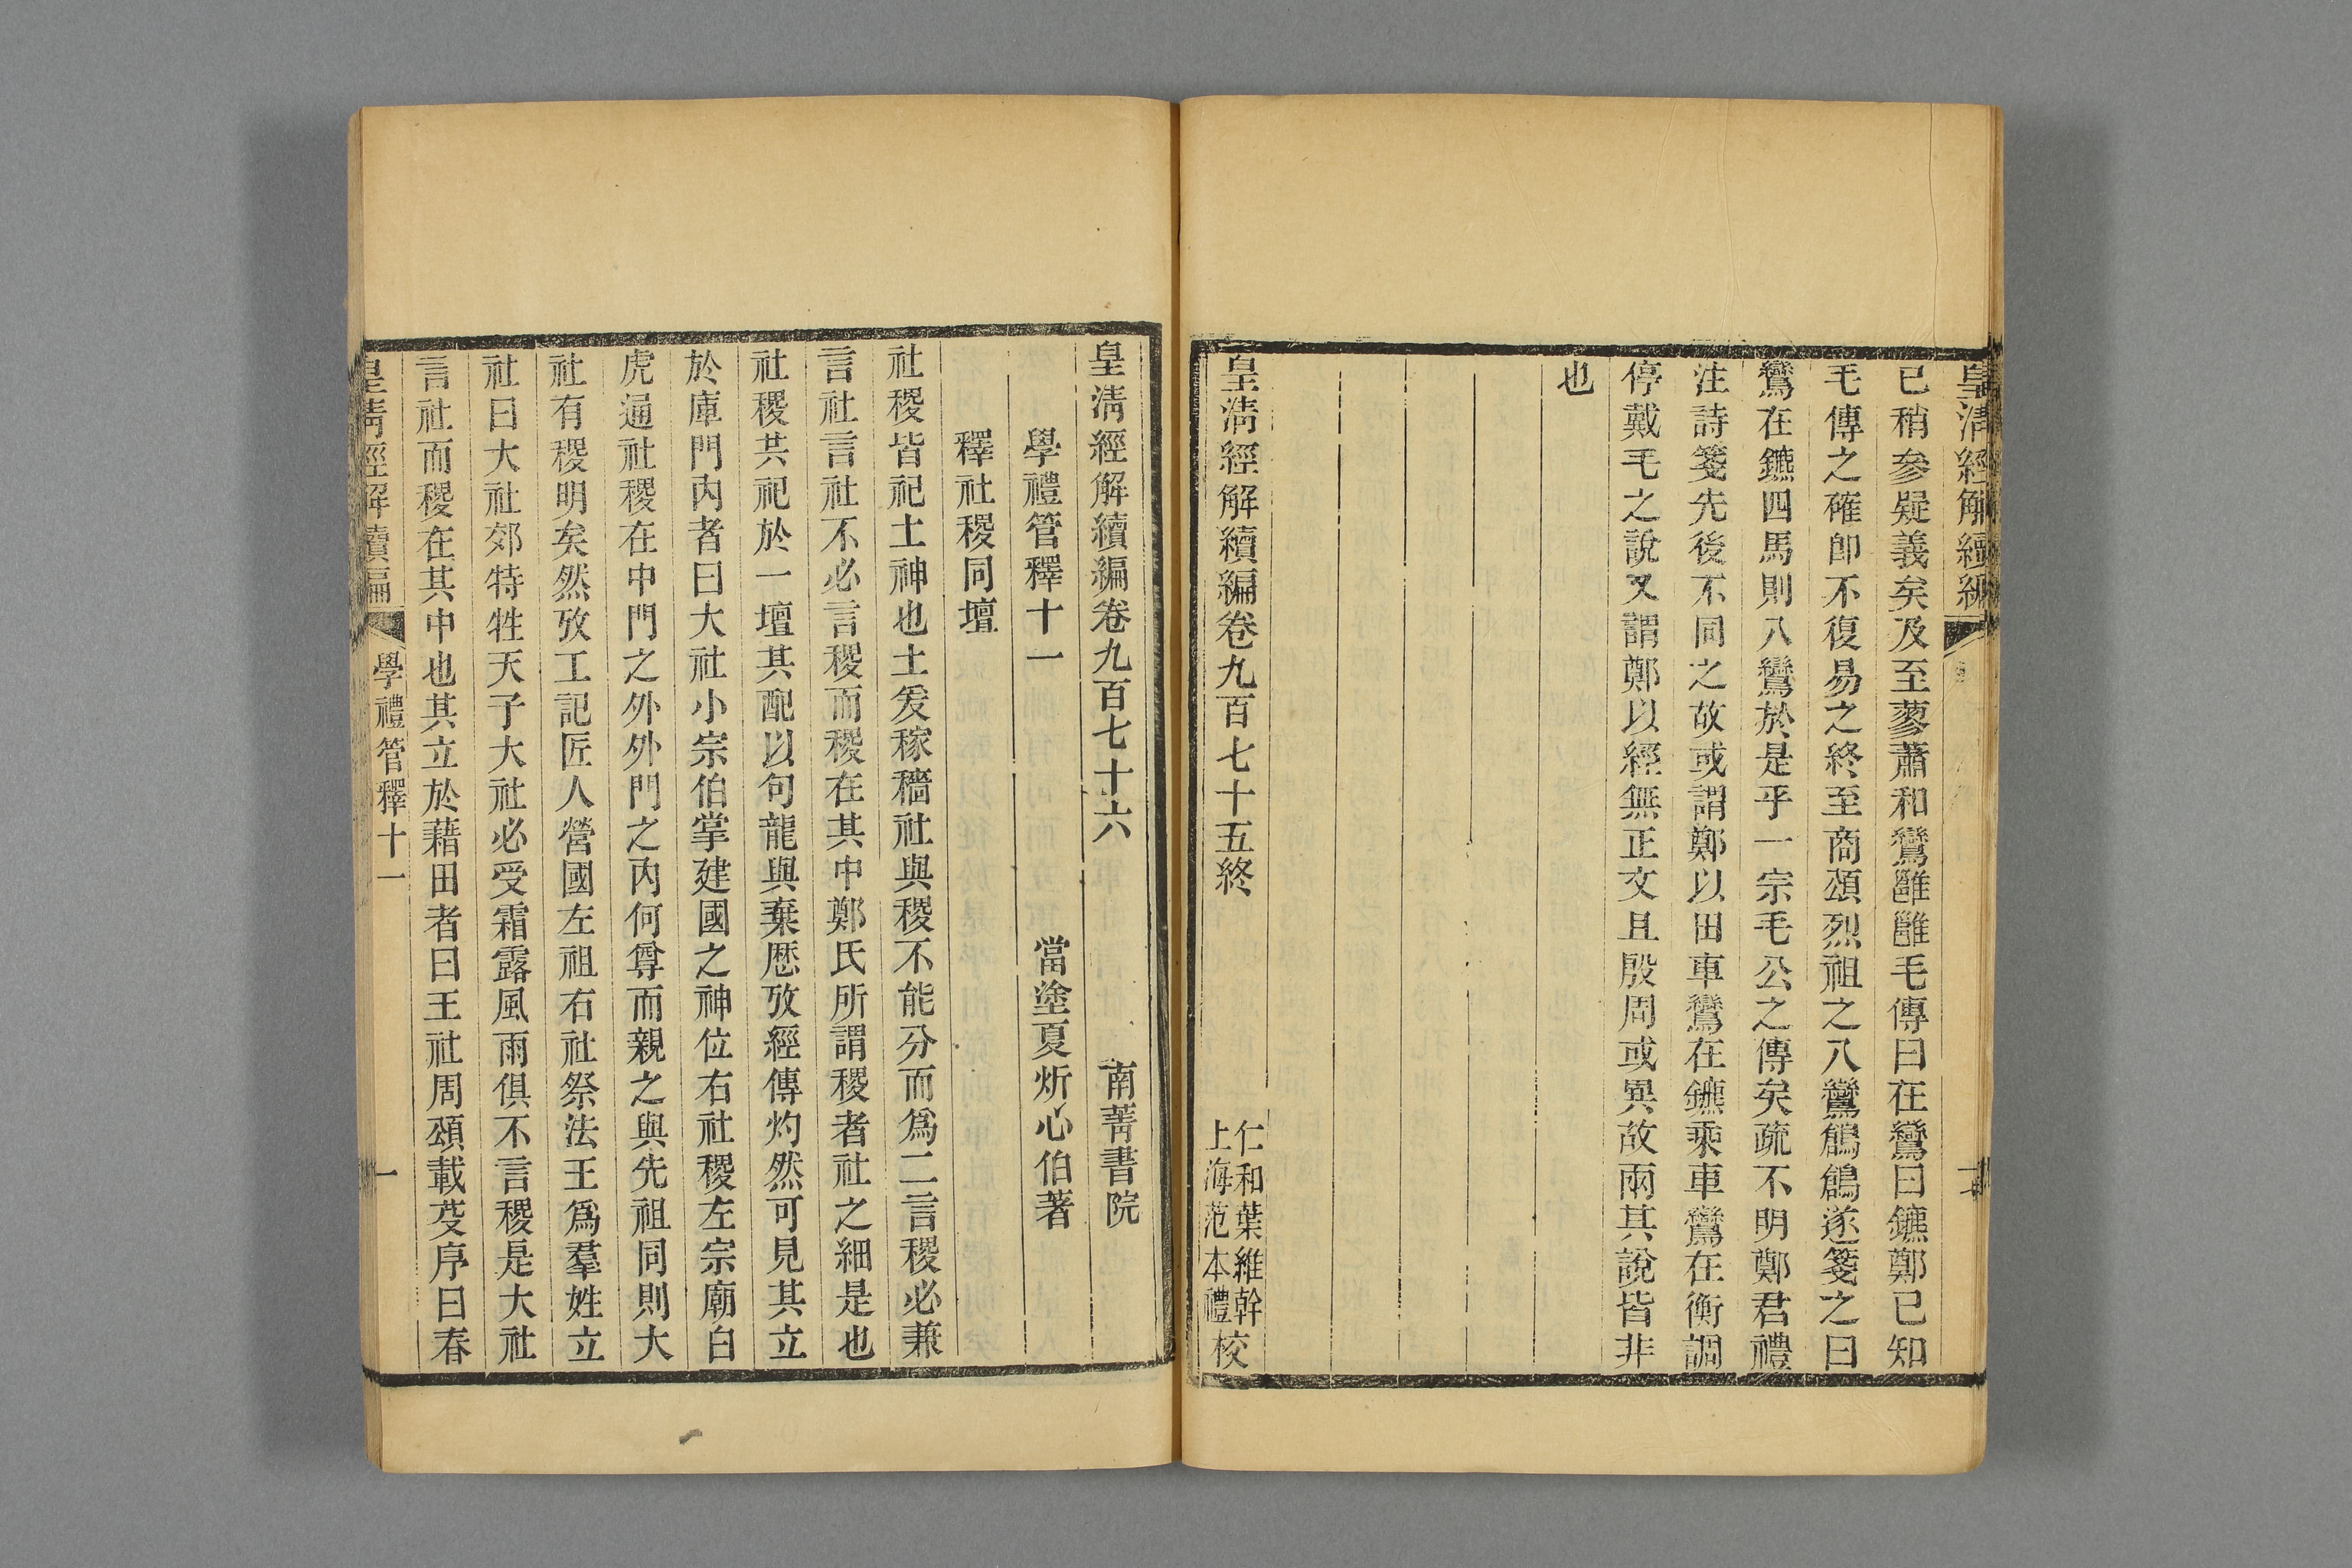 皇清經解續編
已稍參疑義矣及至蓼蕭和鸞雝雝毛傳曰在鸞曰鑣鄭已知
毛傳之確卽不復易之終至商頌烈祖之八鸞鶬鶬遂箋之曰
鸞在鑣四馬則八鸞於是乎一宗毛公之傳矣疏不明鄭君禮
注詩箋先後不同之故或謂鄭以田車鸞在鑣乘車鸞在衡調
停戴毛之說又謂鄭以經無正文且殷周或異故兩其說皆非
也
皇清經解續編卷九百七十五終
仁和葉維幹
上海范本禮
校
皇清經解續編卷九百七十六
南菁書院
學禮管釋十一
當塗夏炘心伯著
釋社稷同壇
社稷皆祀土神也土爰稼穡社與稷不能分而爲二言稷必兼
言社言社不必言稷而稷在其中鄭氏所謂稷者社之細是也
社稷共祀於一壇其配以句龍與棄歷攷經傳灼然可見其立
於庫門內者曰大社小宗伯掌建國之神位右社稷左宗廟白
虎通社稷在中門之外外門之內何尊而親之與先祖同則大
社有稷明矣然攷工記匠人營國左祖右社祭法王爲羣姓立
社曰大社郊特牲天子大社必受霜露風雨俱不言稷是大社
言社而稷在其中也其立於藉田者曰王社周頌載芟序曰春
皇清經解續編
學禮管釋十一
一